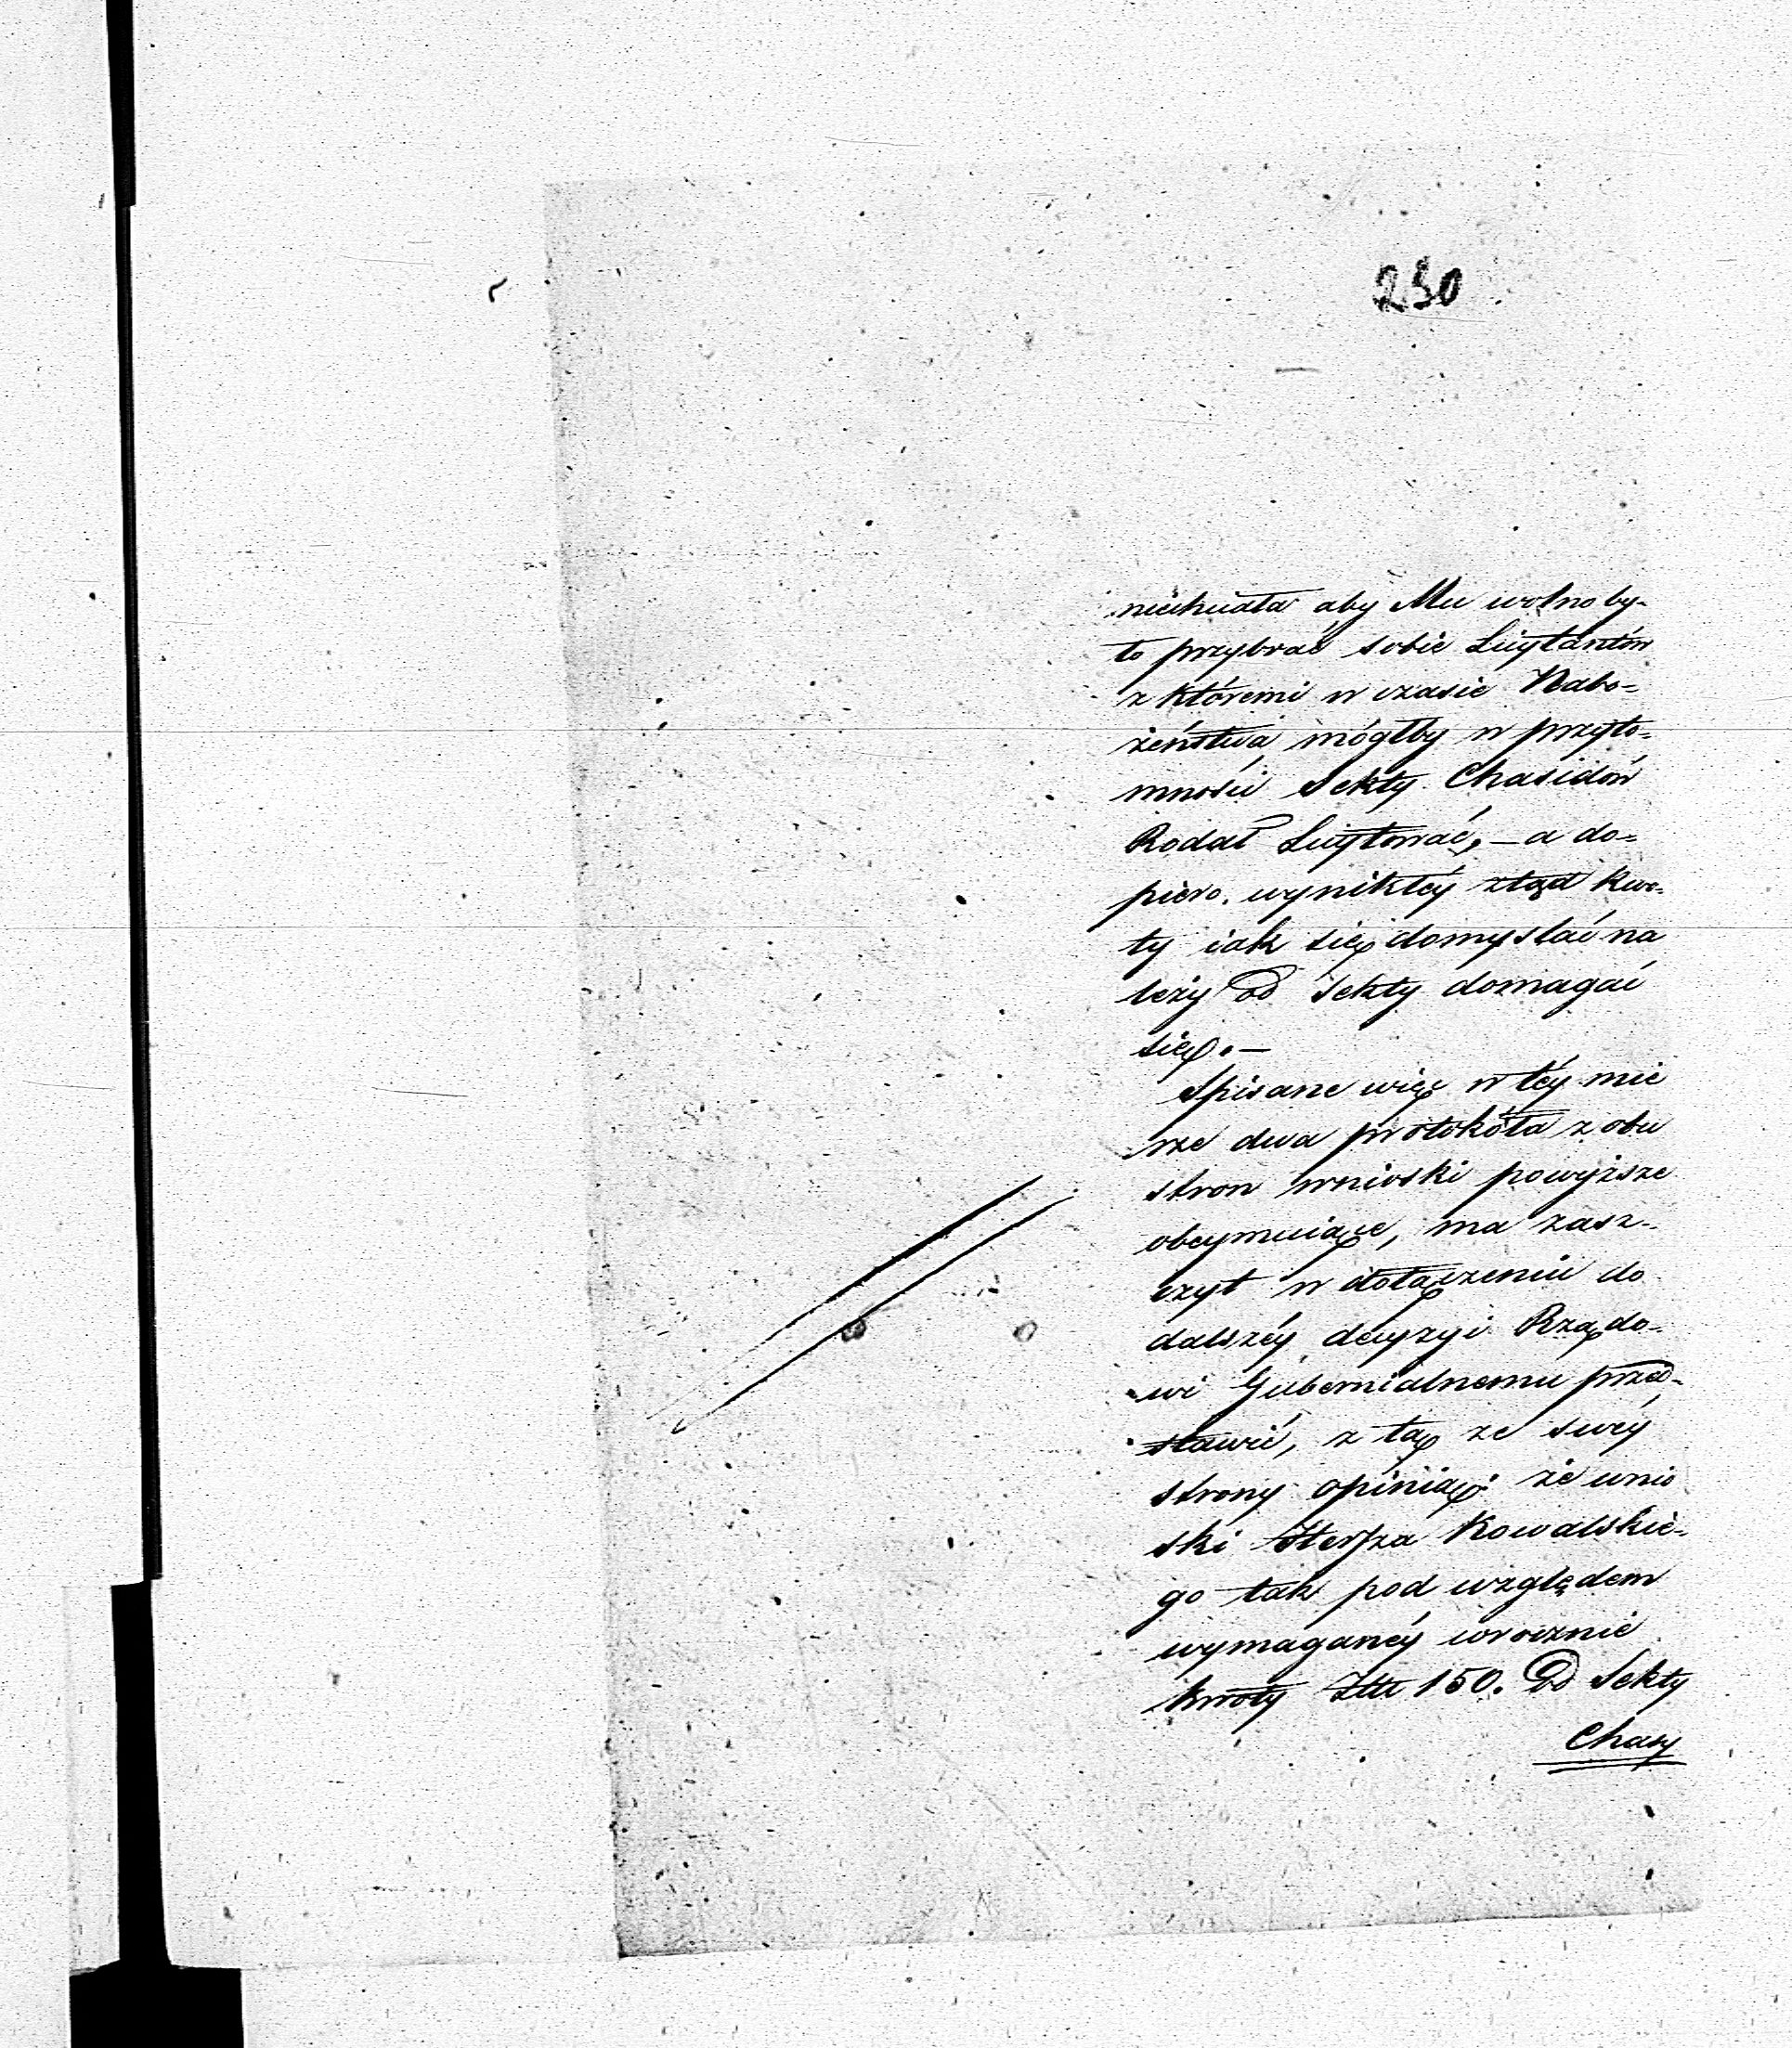 230
aby Mu wolno by-
ło przybrać sobie Licytantów
z któremi w czasie Nabo-
żeństwa mógłby w przyto-
mności Sekty Chasidów
Rodał Licytować, — a do-
piero wynikłéy ztąd kwo-
ty iak się domyslać na
leży od Sekty domagać
się. —
Spisane więc w téy mie
rze dwa protokóła z obu
stron wnioski powyższe
obeymuiące, ma zasz-
czyt w dołączeniu do
dalszéy decyzyi Rządo-
wi Gubernialnemu przed-
stawić, z tą ze swéy
strony opinią że wnio
ski Herszа Kowalskie-
go tak pod względem
wymaganéy wrocznie
kwoty Złłł 150. Od Sekty
Chasy